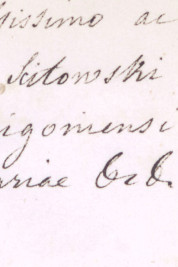 tissimo ac
Scitowski
igoniensi
ariae &c &.